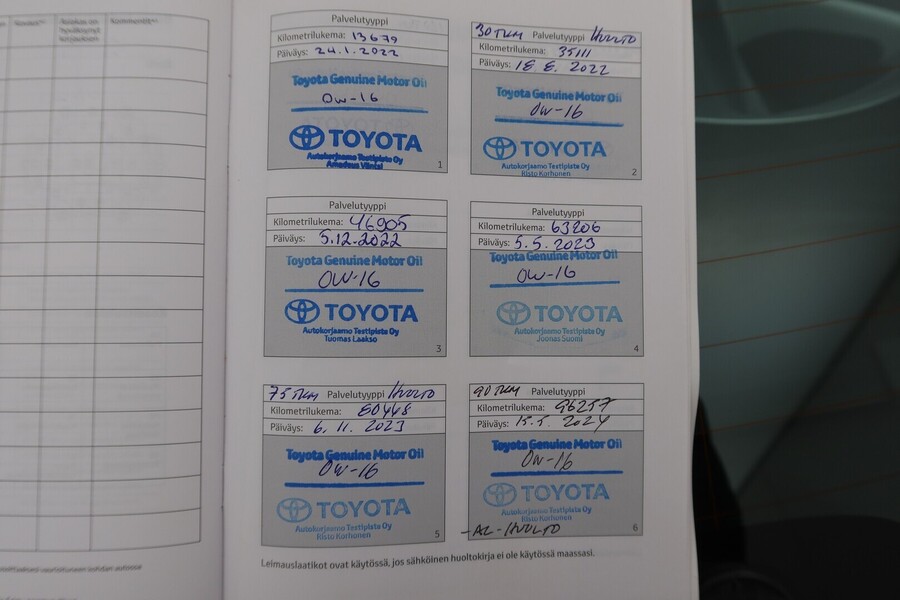 Palvelutyyppi
Kilometrilukema: 13679
Päiväys: 24.1.2022
Toyota Genuine Motor Oil
0W-16
TOYOTA
Autokorjaamo Testipiste Oy
1
30 TKM Palvelutyyppi HUOLTO
Kilometrilukema: 35111
Päiväys: 18.8.2022
Toyota Genuine Motor Oil
0W-16
TOYOTA
Autokorjaamo Testipiste Oy
Risto Korhonen
2
Palvelutyyppi
Kilometrilukema: 46905
Päiväys: 5.12.2022
Toyota Genuine Motor Oil
0W-16
TOYOTA
Autokorjaamo Testipiste Oy
Tuomas Laakso
3
Palvelutyyppi
Kilometrilukema: 63206
Päiväys: 5.5.2023
Toyota Genuine Motor Oil
0W-16
TOYOTA
Autokorjaamo Testipiste Oy
Joonas Suomi
4
75 TKM Palvelutyyppi HUOLTO
Kilometrilukema: 80448
Päiväys: 6.11.2023
Toyota Genuine Motor Oil
0W-16
TOYOTA
Autokorjaamo Testipiste Oy
Risto Korhonen
5
90 TKM Palvelutyyppi
Kilometrilukema: 96257
Päiväys: 15.5.2024
Toyota Genuine Motor Oil
0W-16
TOYOTA
Autokorjaamo Testipiste Oy
Risto Korhonen
-AC-HUOLTO
6
Leimauslaatikot ovat käytössä, jos sähköinen huoltokirja ei ole käytössä maassasi.